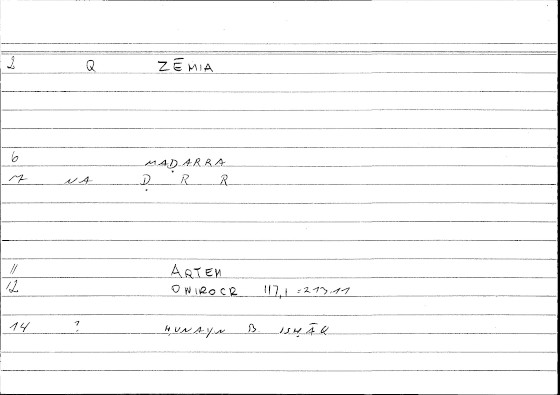 2 Q ZĒMIA
6 MAḌARRA
7 NA Ḍ R R
11 ARTEM
12 ONIROCR 117,1 = 213.11
14 ? ḤUNAYN B ISḤĀQ